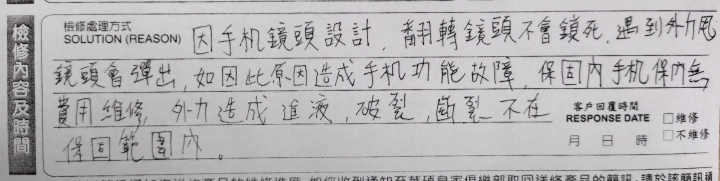 檢修內容及時間
檢修處理方式
SOLUTION (REASON)
因手机鏡頭設計，翻轉鏡頭不會鎖死，遇到外力鏡頭會彈出，如因此原因造成手机功能故障，保固內手机保內無
費用維修，外力造成進液，破裂，斷裂不在
保固範圍內。
客戶回覆時間
RESPONSE DATE
□維修
□不維修
月 日 時